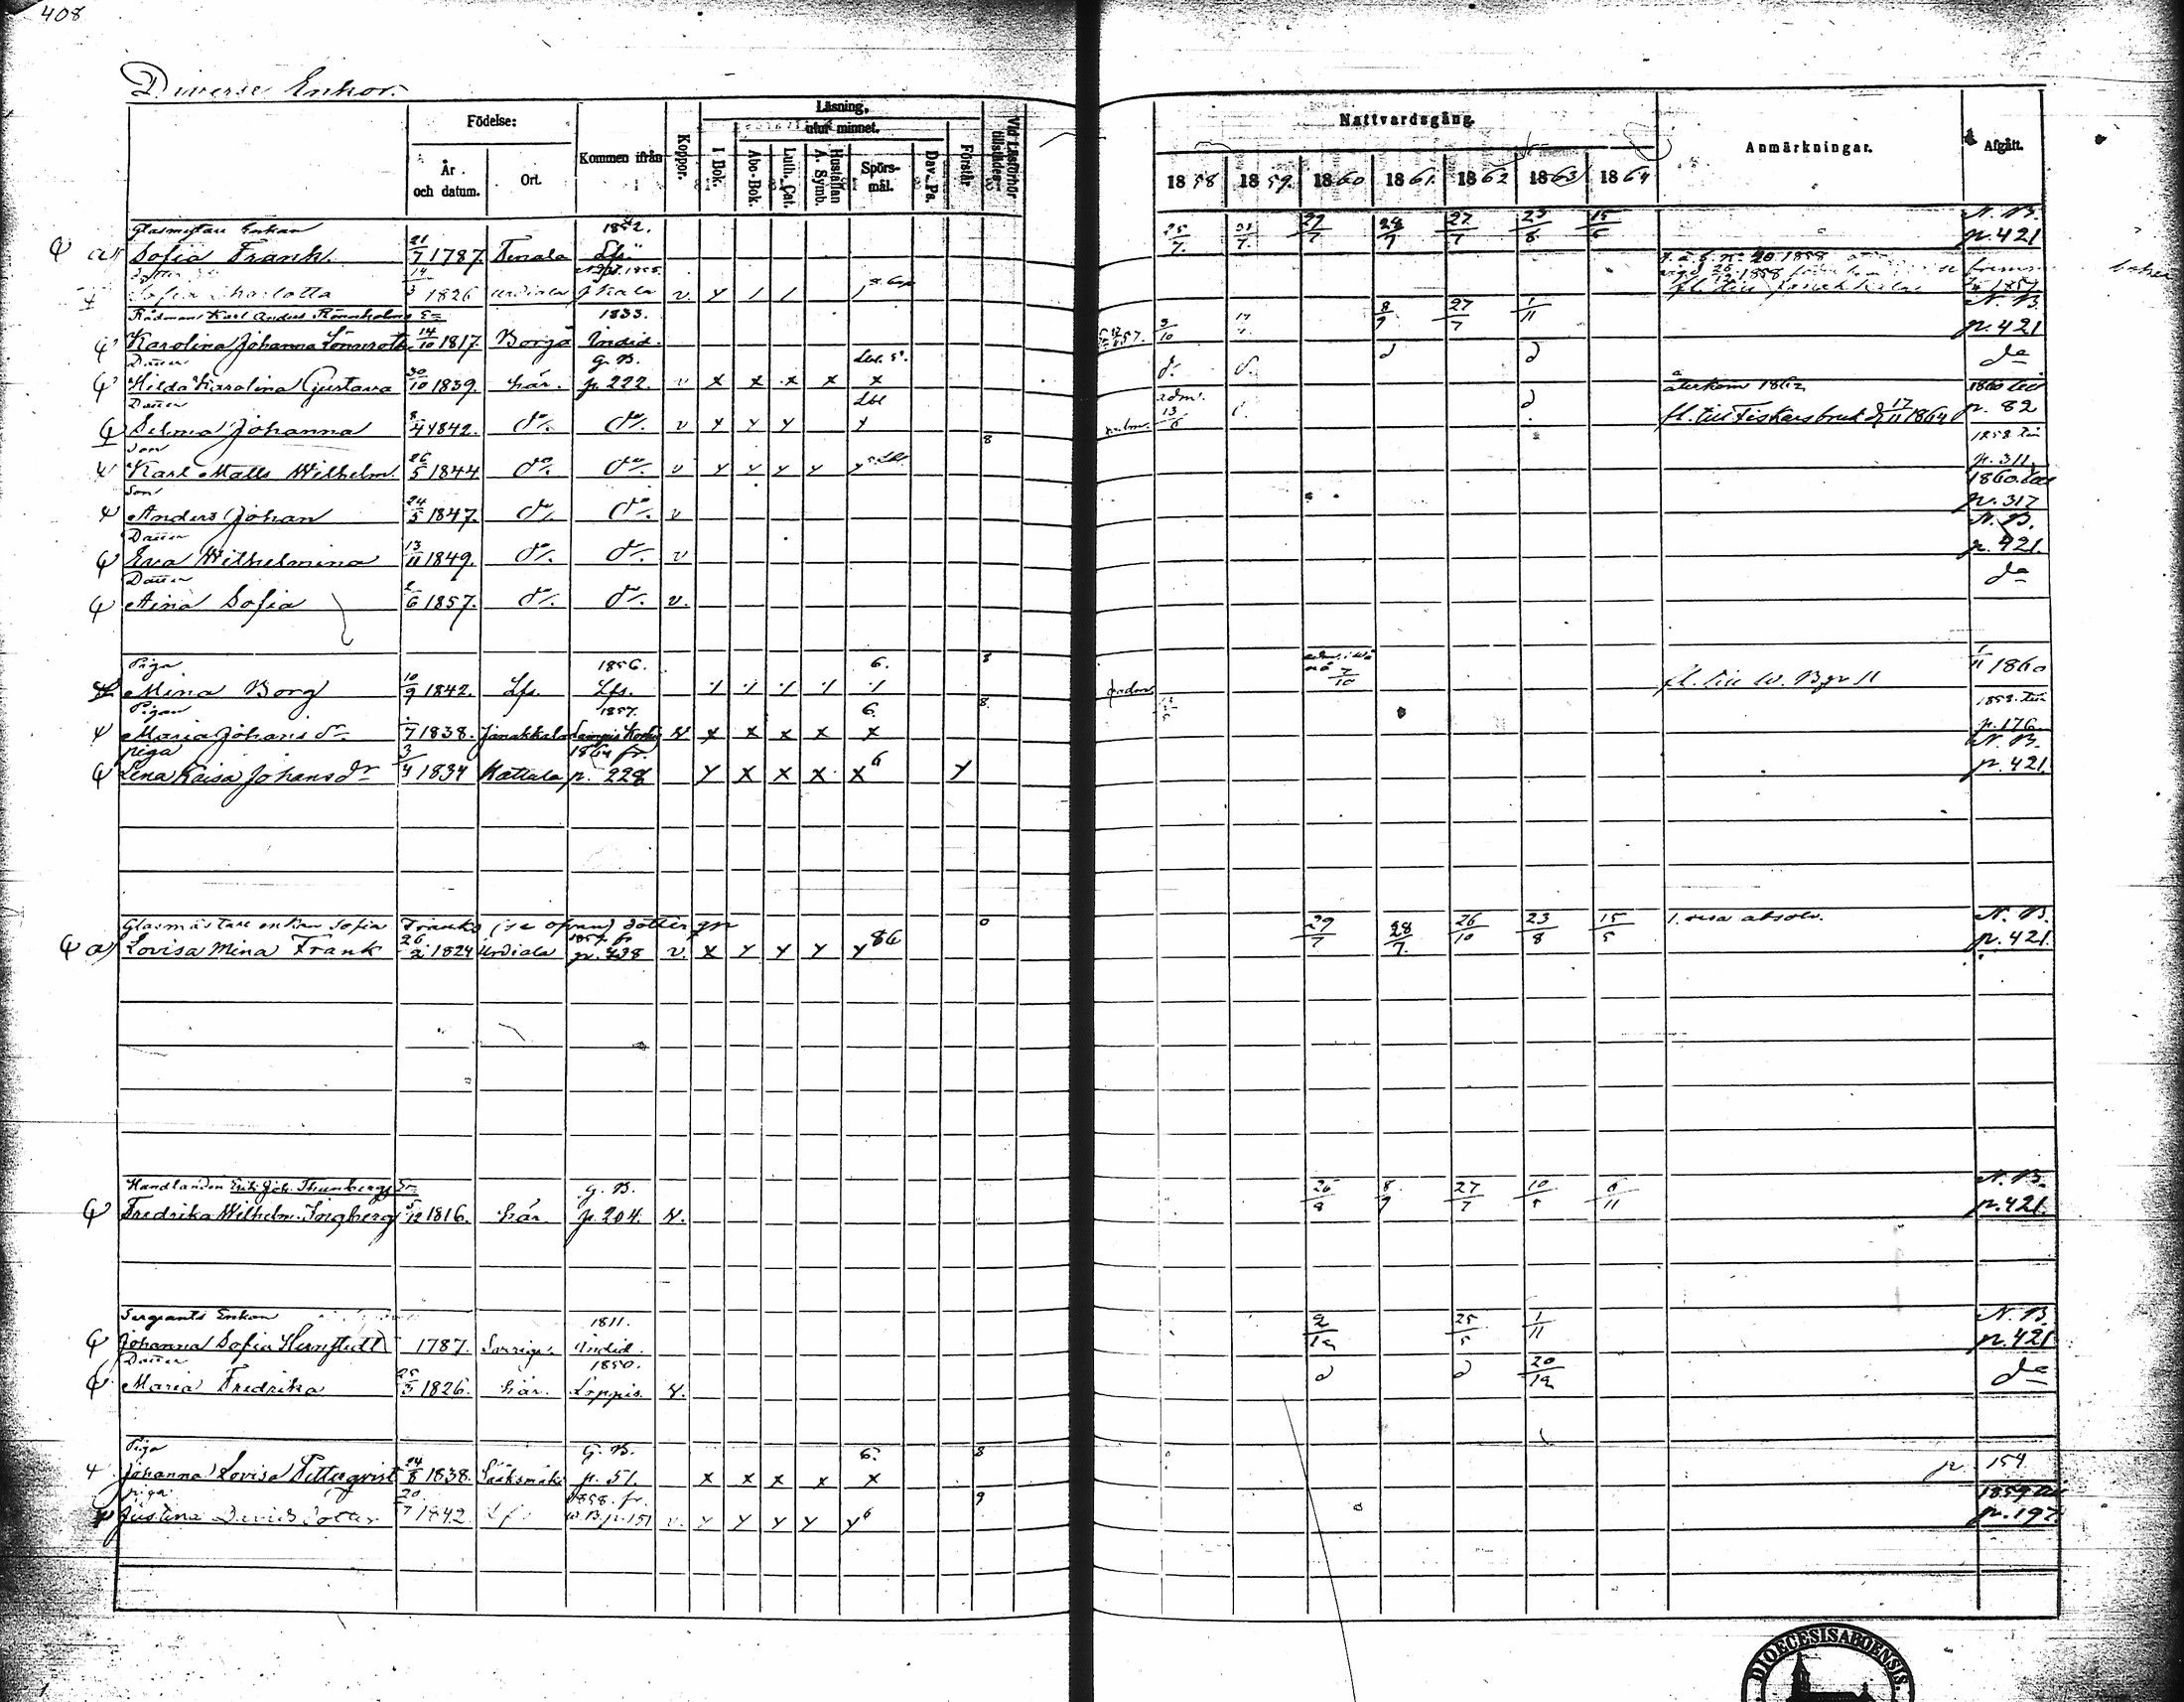 408
Diverse Enkor.
Födelse:
År och datum.
Ort.
Kommen ifrån
Koppor.
Läsning,
utur minnet.
I Bok.
Abc-Bok.
Luth. Cat.
Hustaflan A. Symb.
Spörs-mål.
Dav. Ps.
Förstår
Vid Läsförhör tillstädes
Nattvardsgång.
1858 1859. 1860 1861. 1862 1863 1864
Anmärkningar.
Afgått.
Glasmästare Enkan 1842. N. B.
a) Sofia Frank. 21/7 1787. Tenala Lfs. 25/7. 31/7. 27/7 28/7 27/7 23/8 15/5 p. 421
Sofia Charlotta 14/3 1826 Urdiala v. y / /
Rådman Karl Anders Rönnholms E= 1833. N. B.
Karolina Johanna Lönnroth 14/10 1817. Borgå Indid. 3/10 8/9 27/7 1/11 p. 421
Dotter G. B.
Hilda Karolina Gustava 30/10 1839. här. p. 222. v x x x x x återkom 1862 do
Dotter Lbl adm. 1860 till
Selma Johanna 8/4 1842. do. do. v y y y y 13/6 fl. till Fiskars bruk d. 17/11 1864 p. 82
Son 8 1858 till
Karl Matts Wilhelm. 26/5 1844 do. do. v y y y y y p. 311.
Son 1860 till
Anders Johan 24/5 1847. do. do. v p. 317
Dotter N. B.
Eva Wilhelmina 13/11 1849. do. do. v p. 421.
Dotter
Aina Sofia 2/6 1857. do. do. v. do
Piga 1856. 6. 8
Mina Borg 10/9 1842. Lfs. Lfs. 7/10 fl. till W. Bgr 11 1/11 1860
Pigan 1857. 6. 8 1858 till
Maria Johans dr. 7 1838. Janakkala x x x x x p. 176
piga 1864 fr. N. B.
Lena Kaisa Johansdr 3/4 1834 Kattala p. 228 y x x x x 6 y p. 421.
Glasmästare enkan Sofia Franks (se ofvan) dotter 0 1. resa absolv. N. B.
a) Lovisa Mina Frank 26/2 1824 Urdiala v. x y y y y 29/7 28/7. 26/10 23/8 15/5 p. 421.
Handlanden Erik Joh. Thunbergs E= G. B. N. B.
Fredrika Wilhelm. 5/12 1816. här. p. 204. v. 26/8 8/9 27/7 10/5 6/11 p. 421.
Sergeants Enkan 1811. N. B.
Johanna Sofia 1787. Sverige Indid. 2/12 25/5 1/11 p. 421
Dotter 1850.
Maria Fredrika 25/3 1826. här. Loppis. v. 20/12 do
Piga G. B. 6. 8
Johanna Lovisa 24/8 1838. Sääksmäki p. 51. x x x x x p 154
piga 1858. fr. 9 1859 till
Justina Davids dotter 20/7 1842. Lfs. W. B. p. 151 v. y y y y y 6 p. 197.
DIOECESIS ABOENSIS.